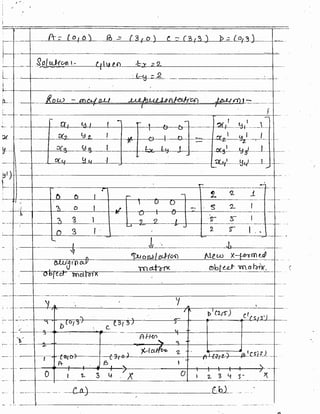 A = (0,0) B = (3,0) C = (3,3) D = (0,3)
Solution:- Given tx = 2
ty = 2
Row - major representation form:-
x1 y1 1
x2 y2 1
x3 y3 1
x4 y4 1
1 0 0
0 1 0
tx ty 1
=
x1' y1' 1
x2' y2' 1
x3' y3' 1
x4' y4' 1
0 0 1
3 0 1
3 3 1
0 3 1
1 0 0
0 1 0
2 2 1
=
2 2 1
5 2 1
5 5 1
2 5 1
original
object matrix
Translation
matrix
New X-formed
object matrix.
y
4
3
2
1
0 1 2 3 4 X
D (0,3)
C (3,3)
A (0,0)
B (3,0)
After
X-lation
y
5
4
3
2
1
0 1 2 3 4 5 X
D'(2,5)
C'(5,5)
A'(2,2)
B'(5,2)
(a)
(b)